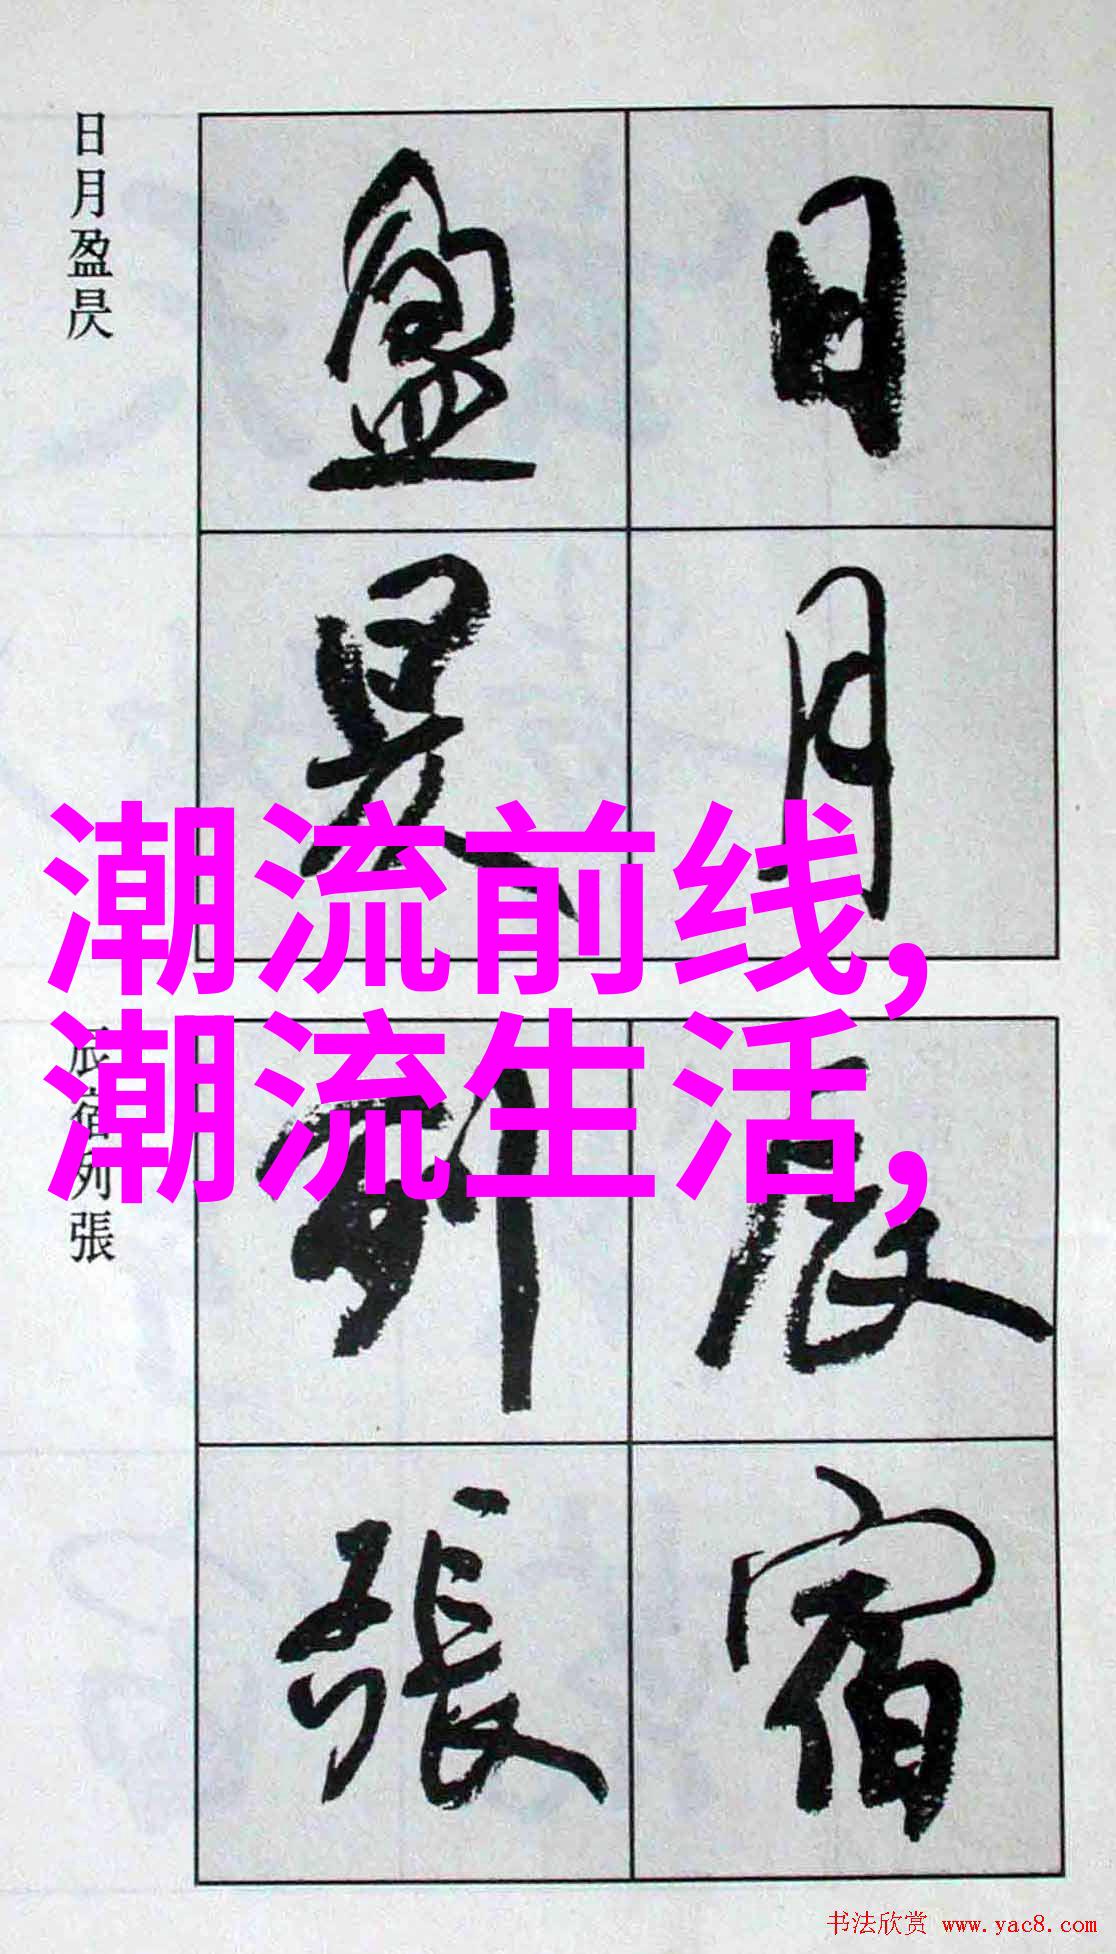 日月盈昃
日月
盈昃
潮流前线,
潮流生活,
辰宿列張
辰宿
列張
书法欣赏 www.yac8.com